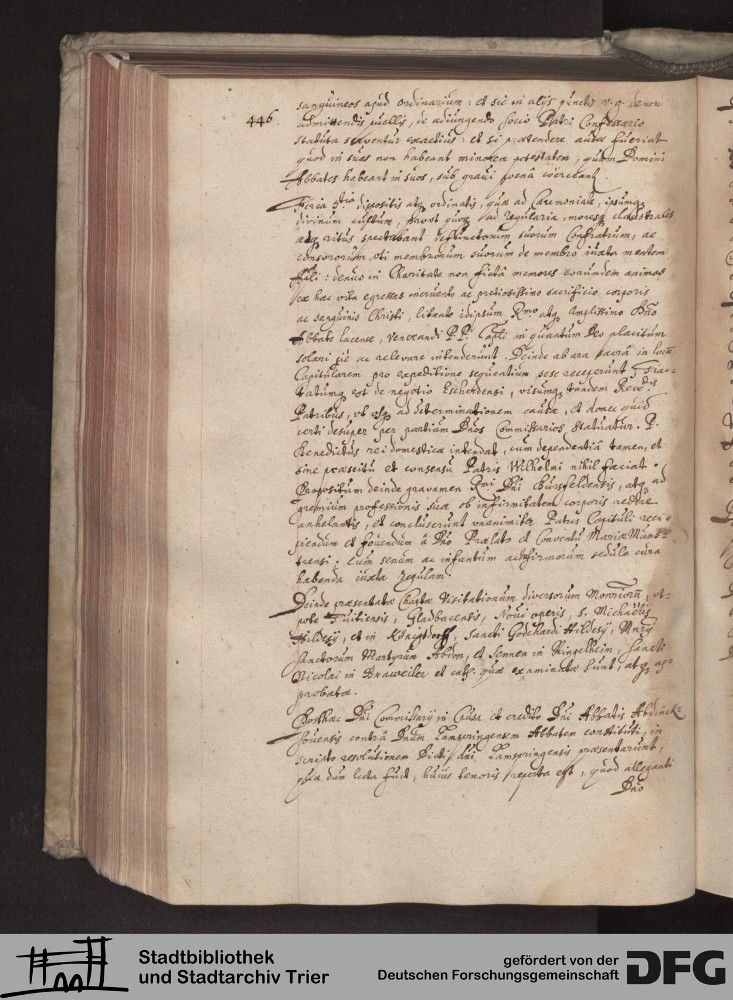 446.
sanguineos apud ordinarium: et sic in alijs punctis v.g. de non
admittendis puellis, de adiungendo socio Patri Confessario
statuta serventur exactius: et si praetendere ausae fuerint
quod in suas non habeant minorem potestatem, quam Domini
Abbates habeant in suos, sub gravi poena coerceant.
Feria 3tia dispositis atq ordinatis, quae ad Caeremonias, ipsumq
divinum cultum, prout quoq ad regularia, moresq claustrales
atq ritus spectabant defunctorum suorum Confratrum, ac
consororum, uti membrorum suorum de membro iuxta mentem
denuo in Charitate non fictâ memores eorumdem animas
ex hac vita egressas incruento ac pretiosissimo sacrificio corporis
ac sanguinis Christi, litante idipsum Rmo atq Amplissimo Dno
Abbate Lacense, Venerandi P.P. Capli in quantum Deo placitum
solari piè ac relevare intenderunt. Deinde ab ara sacrâ in locum
Capitularem pro expeditione sequentium sese receperunt, Trac-
tatumq est de negotio Eschedensi, visumq tandem Revdis
Patribus, ut usq ad determinationem causae, et donec quid
certi desuper per partium Dnos Commissarios statuatur. P.
Benedictus rei domesticae intendat, cum dependentiâ tamen, et
sine praescitu et consensu Patris Wilhelmi nihil faciat.
Propositum deinde gravamen Rmi Dni Bursfeldensis, atq ad
gremium professionis suae ob infirmitatem corporis redire
anhelantis, et concluserunt unanimiter Patres Capituli reci-
piendum et fovendum à Dno Praelato et Conventu Mariae Müns-
trensi. Cum senum ac infantum ac infirmorum sedula cura
habenda iuxta Regulam.
Deinde praesentatae Chartae Visitationum diversorum Monriorum, ut-
pote Tuitiensis, Gladbacensis, Novi operis, S. Michaëlis
Hildesij, et in Königsdorff, Sancti Godehardi Hildesij, Mnrij
Sanctorum Martyrum Abdon, et Sennen in Ringelheim, Sancti
Nicolai in Brauweiler et quae examinatae sunt, atq ap-
probatae.
Posthac Dni Commissarij in Causa et credito Dni Abbatis Abdinck-
hovensis contrà Dnum Lamspringensem Abbatem constituti, in
scripto resolutionem Dicti Dni Lamspringensis praesentarunt,
quae dum lecta fuit, huius tenoris reperta est, quod alleganti
Dno
Stadtbibliothek
und Stadtarchiv Trier
gefördert von der
Deutschen Forschungsgemeinschaft
DFG